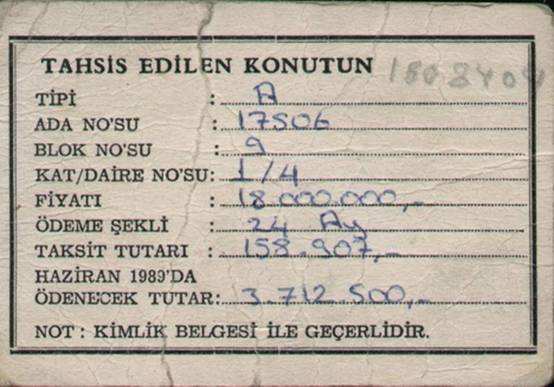 TAHSİS EDİLEN KONUTUN 1808404
TİPİ : A
ADA NO'SU : 17506
BLOK NO'SU : 9
KAT/DAİRE NO'SU: 1/4
FİYATI : 18.000.000,-
ÖDEME ŞEKLİ : 24 Ay
TAKSİT TUTARI : 158.907,-
HAZİRAN 1989'DA
ÖDENECEK TUTAR: 3.712.500,-
NOT : KİMLİK BELGESİ İLE GEÇERLİDİR.